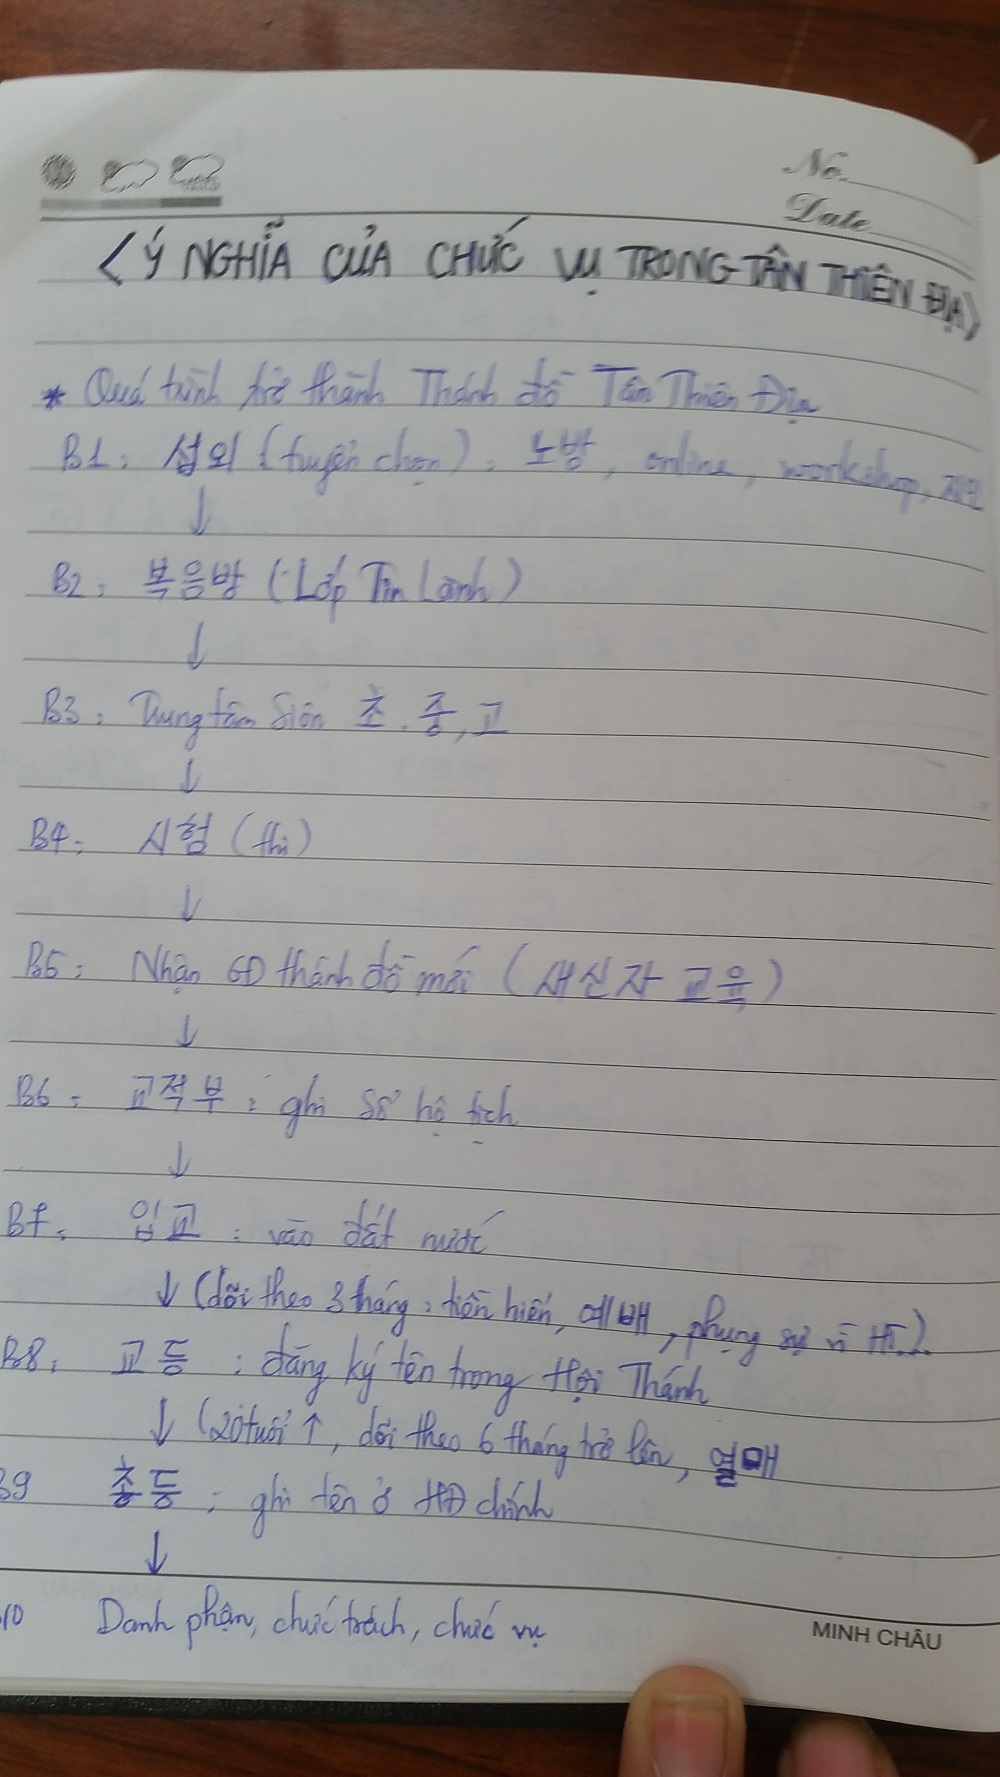 No.
Date
<Ý NGHĨA CỦA CHỨC VỤ TRONG TÂN THIÊN ĐỊA>
* Quá trình trở thành Thánh đồ Tân Thiên Địa
B1: 섭외 (tuyển chọn): 노방, online, workshop, 지인
↓
B2: 복음방 (Lớp Tin Lành)
↓
B3: Trung tâm Siôn 초, 중, 고
↓
B4: 시험 (thi)
↓
B5: Nhận GD thánh đồ mới (새신자 교육)
↓
B6: 교적부: ghi sổ hộ tịch
↓
B7: 입교: vào đất nước
↓ (dõi theo 3 tháng: tiền hiến, 예배, phụng sự vì HT..)
B8: 교등: đăng ký tên trong Hội Thánh
↓ (20 tuổi ↑, dõi theo 6 tháng trở lên, 열매
B9 총등: ghi tên ở HĐ chính
↓
10 Danh phận, chức trách, chức vụ
MINH CHÂU